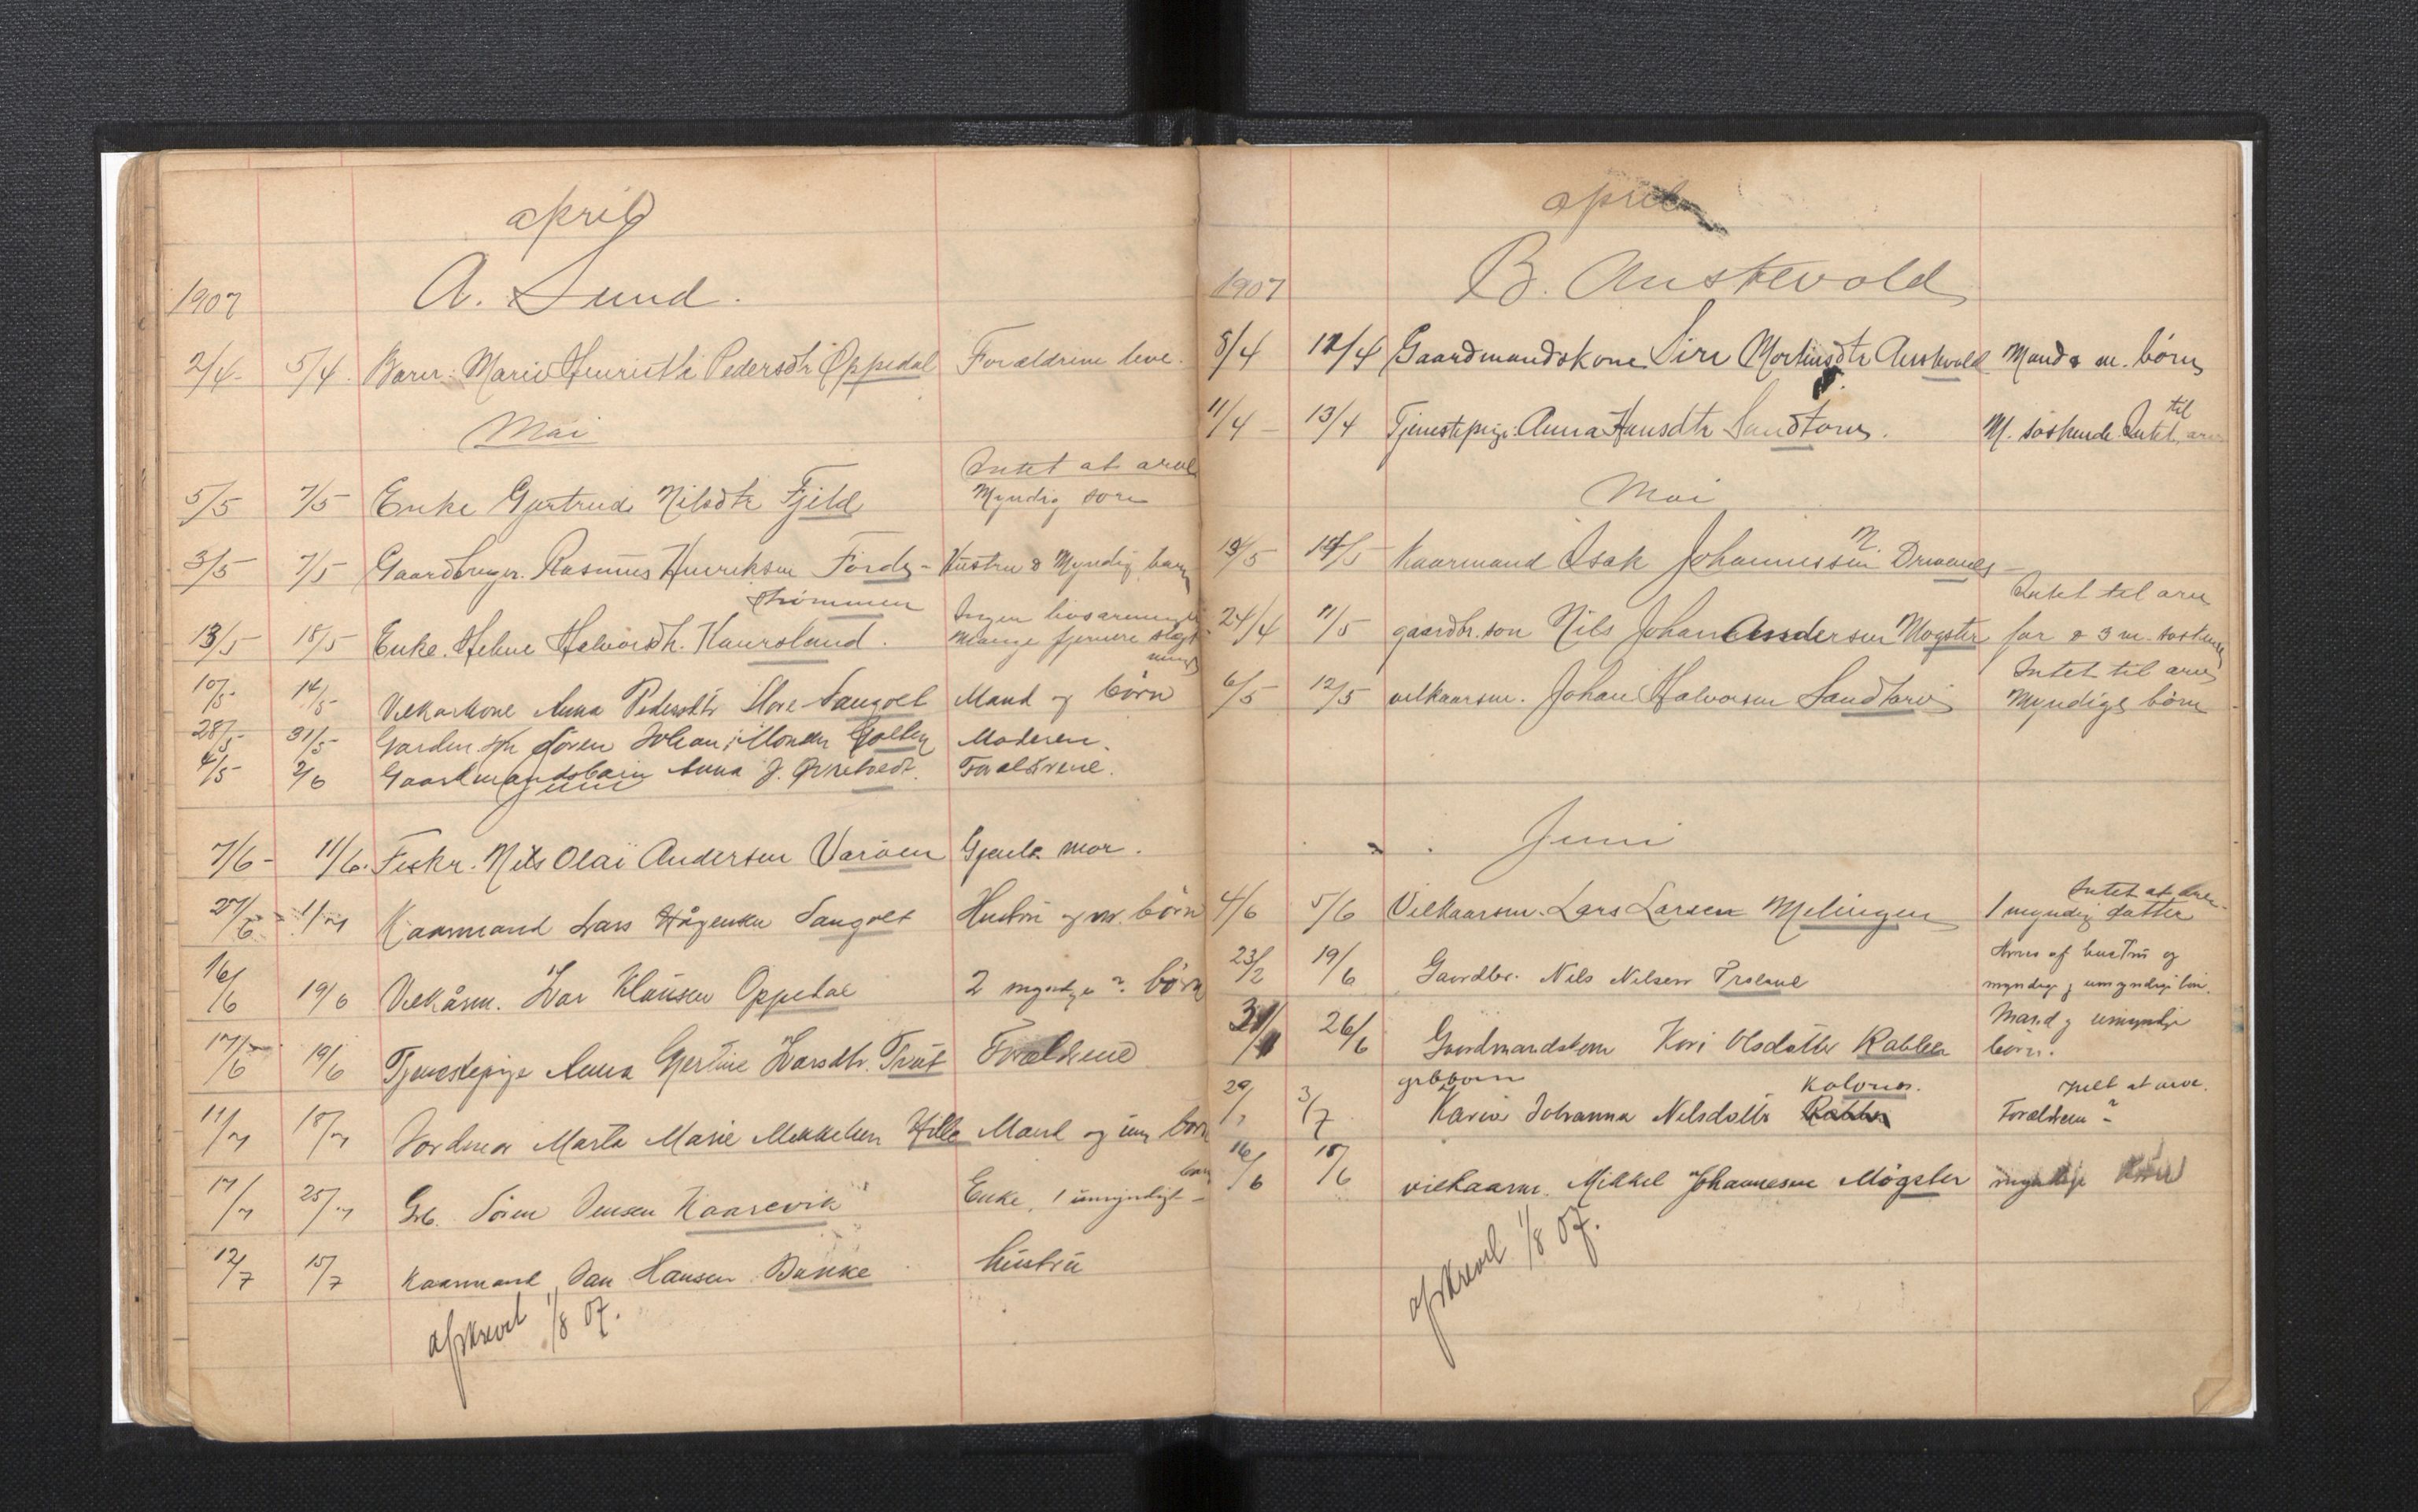 april
A. Sund.
1907
2/4 - 5/4. Barn: Marie Henriette Pedersdtr Oppedal Forældrene leve.
Mai
Intet at arve
5/5 7/5 Enke Gjertrud Nilsdtr Fjeld Myndig søn
3/5 7/5 Gaardbruger. Rasmus Henriksen Förde - Hustru & Myndig barn
Strømmen
Ingen livsarvinger
13/5 18/5 Enke. Helene Halvorsdtr. Kaursland. Mange fjernere slægt
ninge
10/5 14/5 Velkarkone Anna Pedersdtr Store Sangolt Mand og børn
28/5 31/5 Gardm. søn Sören Johan Monsen Golten Moderen.
4/5 2/6 Gaardmandsbarn Anna J. Ørretvedt. Forældrene.
Juni
7/6 - 11/6. Fisker. Nils Olai Andersen Varöen Gjenlev. mor.
27/6 - 1/7 Kaarmand Lars Hågensen Sangolt Hustru og m. børn
16/6 19/6 Velkårm. Ivar Klausen Oppedal 2 myndige ? börn
17/6 19/6 Tjenestepige Anna Gjertine Ivarsdtr. Træt Forældrene
11/7 18/7 Jordmor Marta Marie Mikkelsen Kille Mand og um. børn
barn
17/7 25/7 Grb. Sören Jensen Kaarevik Enke, 1 umyndigt -
12/7 15/7 Kaarmand Jan Hansen Bakke hustru
afskrevet 1/8 07.
april
B. Austevold
1907
8/4 12/4 Gaardmandskone Siri Mortinsdtr Austevold Mand & m. børn
til
11/4 - 13/4 Tjenestepige. Anna Hansdtr Sandtorv. M. søskende. Intet arv
Mai
M.
13/5 14/5 Kaarmand Isak Johannessen Drivenes -
Intet til arv
24/4 11/5 gaardbr. søn Nils Johan Andersen Møgster far & 3 m. søskende
Intet til arv
6/5 12/5 velkaarsm. Johan Halvorsen Sandtorv Myndige børn
Juni
Intet at arve.
4/6 5/6 Velkaarsm. Lars Larsen Melingen 1 myndig datter
Arves af hustru og
23/2 19/6 Gaardbr. Nils Nilsen Troland myndige og umyndige börn.
Mand og umyndige
26/6 Gaardmandskone Kari Olsdatter Rabben børn.
grbbarn Kolvnes. intet at arve.
29/ 3/7 Karia Johanna Nilsdatter Rabben Forældren ?
16/6 18/6 vilkaarm. Mikkel Johannesen Møgster myndige børn
afskrevet 1/8 07.